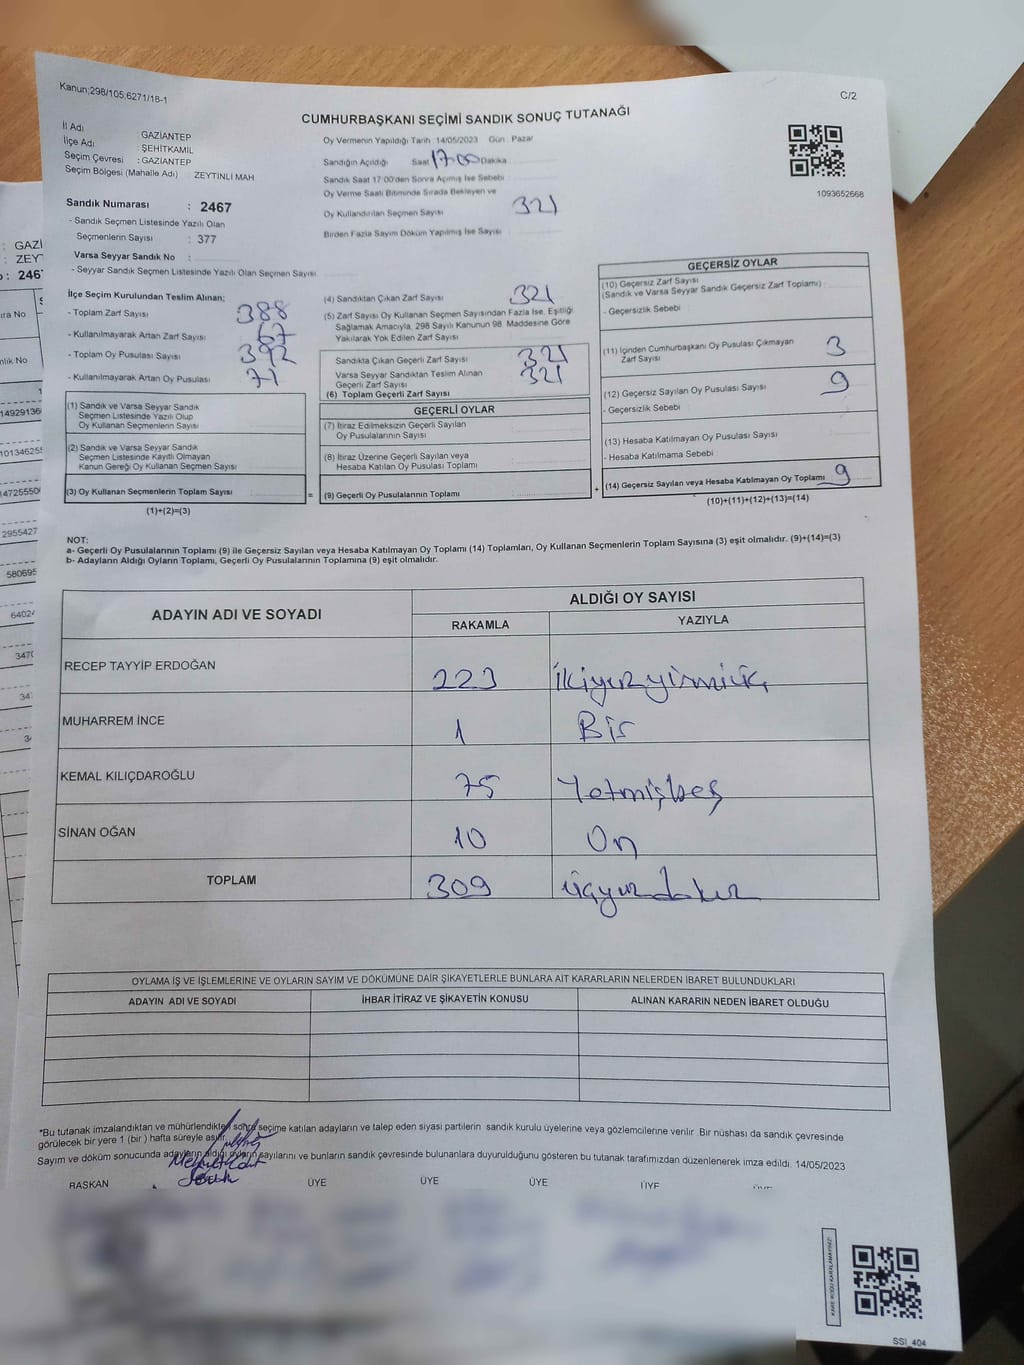 Kanun;298/105,6271/18-1
C/2
CUMHURBAŞKANI SEÇİMİ SANDIK SONUÇ TUTANAĞI
İl Adı : GAZİANTEP
İlçe Adı : ŞEHİTKAMİL
Seçim Çevresi : GAZİANTEP
Seçim Bölgesi (Mahalle Adı) ZEYTİNLİ MAH
Oy Vermenin Yapıldığı Tarih :14/05/2023 Gün : Pazar
Sandığın Açıldığı Saat 17.00 Dakika
Sandık Saat 17:00'den Sonra Açılmış İse Sebebi
Oy Verme Saati Bitiminde Sırada Bekleyen ve
Oy Kullandırılan Seçmen Sayısı 321
Birden Fazla Sayım Döküm Yapılmış İse Sayısı
1093652668
Sandık Numarası : 2467
- Sandık Seçmen Listesinde Yazılı Olan
Seçmenlerin Sayısı : 377
Varsa Seyyar Sandık No :
- Seyyar Sandık Seçmen Listesinde Yazılı Olan Seçmen Sayısı
İlçe Seçim Kurulundan Teslim Alınan;
- Toplam Zarf Sayısı 388
- Kullanılmayarak Artan Zarf Sayısı 67
- Toplam Oy Pusulası Sayısı 392
- Kullanılmayarak Artan Oy Pusulası 71
(1) Sandık ve Varsa Seyyar Sandık
Seçmen Listesinde Yazılı Olup
Oy Kullanan Seçmenlerin Sayısı
(2) Sandık ve Varsa Seyyar Sandık
Seçmen Listesinde Kayıtlı Olmayan
Kanun Gereği Oy Kullanan Seçmen Sayısı
(3) Oy Kullanan Seçmenlerin Toplam Sayısı
(1)+(2)=(3)
=
(4) Sandıktan Çıkan Zarf Sayısı 321
(5) Zarf Sayısı Oy Kullanan Seçmen Sayısından Fazla İse, Eşitliği
Sağlamak Amacıyla, 298 Sayılı Kanunun 98. Maddesine Göre
Yakılarak Yok Edilen Zarf Sayısı
Sandıkta Çıkan Geçerli Zarf Sayısı 321
Varsa Seyyar Sandıktan Teslim Alınan
Geçerli Zarf Sayısı 321
(6) Toplam Geçerli Zarf Sayısı
GEÇERLİ OYLAR
(7) İtiraz Edilmeksizin Geçerli Sayılan
Oy Pusulalarının Sayısı
(8) İtiraz Üzerine Geçerli Sayılan veya
Hesaba Katılan Oy Pusulası Toplamı
(9) Geçerli Oy Pusulalarının Toplamı
+
GEÇERSİZ OYLAR
(10) Geçersiz Zarf Sayısı
(Sandık ve Varsa Seyyar Sandık Geçersiz Zarf Toplamı)
- Geçersizlik Sebebi
(11) İçinden Cumhurbaşkanı Oy Pusulası Çıkmayan 3
Zarf Sayısı
(12) Geçersiz Sayılan Oy Pusulası Sayısı 9
- Geçersizlik Sebebi
(13) Hesaba Katılmayan Oy Pusulası Sayısı
- Hesaba Katılmama Sebebi
(14) Geçersiz Sayılan veya Hesaba Katılmayan Oy Toplamı 9
(10)+(11)+(12)+(13)=(14)
NOT:
a- Geçerli Oy Pusulalarının Toplamı (9) ile Geçersiz Sayılan veya Hesaba Katılmayan Oy Toplamı (14) Toplamları, Oy Kullanan Seçmenlerin Toplam Sayısına (3) eşit olmalıdır. (9)+(14)=(3)
b- Adayların Aldığı Oyların Toplamı, Geçerli Oy Pusulalarının Toplamına (9) eşit olmalıdır.
ADAYIN ADI VE SOYADI
ALDIĞI OY SAYISI
RAKAMLA YAZIYLA
RECEP TAYYİP ERDOĞAN 223 ikiyüzyirmiüç
MUHARREM İNCE 1 Bir
KEMAL KILIÇDAROĞLU 75 Yetmişbeş
SİNAN OĞAN 10 On
TOPLAM 309 üçyüzdokuz
OYLAMA İŞ VE İŞLEMLERİNE VE OYLARIN SAYIM VE DÖKÜMÜNE DAİR ŞİKAYETLERLE BUNLARA AİT KARARLARIN NELERDEN İBARET BULUNDUKLARI
ADAYIN ADI VE SOYADI İHBAR İTİRAZ VE ŞİKAYETİN KONUSU ALINAN KARARIN NEDEN İBARET OLDUĞU
*Bu tutanak imzalandıktan ve mühürlendikten sonra seçime katılan adayların ve talep eden siyasi partilerin sandık kurulu üyelerine veya gözlemcilerine verilir. Bir nüshası da sandık çevresinde
görülecek bir yere 1 (bir ) hafta süreyle asılır.
Sayım ve döküm sonucunda adayların aldığı oyların sayılarını ve bunların sandık çevresinde bulunanlara duyurulduğunu gösteren bu tutanak tarafımızdan düzenlenerek imza edildi. 14/05/2023
BAŞKAN ÜYE ÜYE ÜYE ÜYE
SSİ_404